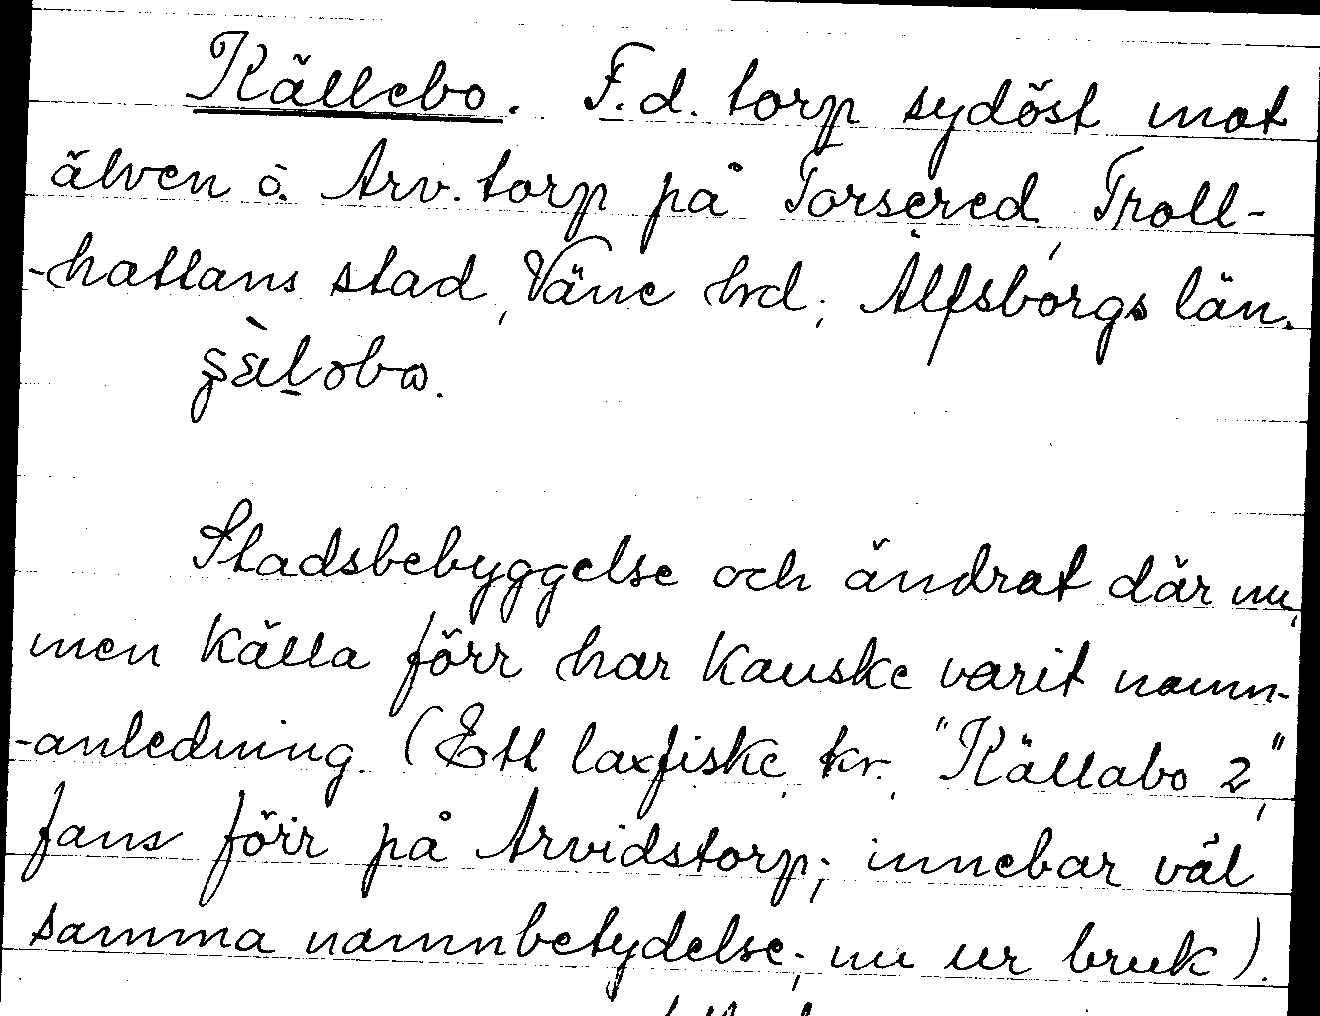 Källebo. F.d. torp sydöst mot
älven ö. Arv. torp på Torsered, Troll-
-hättans stad, Väne hrd; Älfsborgs län.
Stadsbebyggelse och ändrat där nu,
men källa förr har kanske varit namn-
-anledning. (Ett laxfiske, kr. "Källabo 2",
fans förr på Arvidstorp; innebar väl
samma namnbetydelse; nu ur bruk).